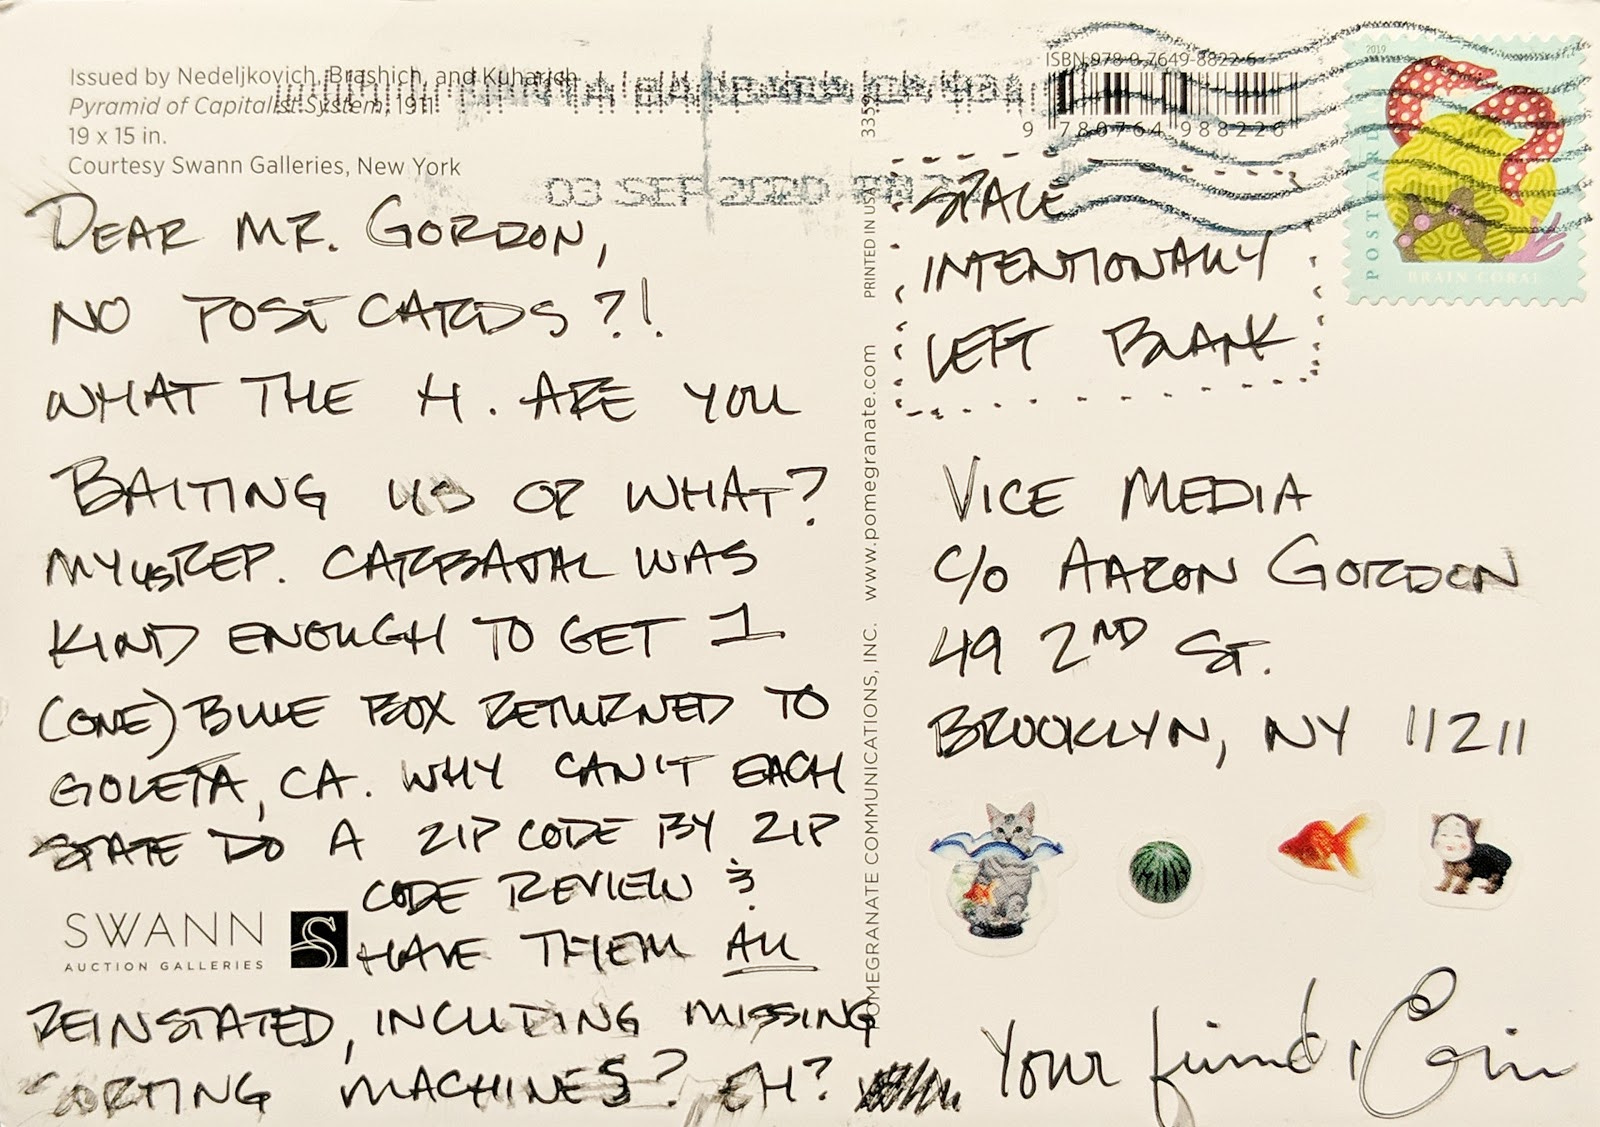 Issued by Nedeljkovich, Brashich, and Kuharich
Pyramid of Capitalist System, 1911
19 x 15 in.
Courtesy Swann Galleries, New York
03 SEP 2020 PM
DEAR MR. GORDON,
NO POST CARDS?!
WHAT THE H. ARE YOU
BAITING US OR WHAT?
MY US REP. CARBAJAL WAS
KIND ENOUGH TO GET 1
(ONE) BLUE BOX RETURNED TO
GOLETA, CA. WHY CAN'T EACH
STATE DO A ZIP CODE BY ZIP
CODE REVIEW &
HAVE THEM ALL
REINSTATED, INCLUDING MISSING
SORTING MACHINES? EH?
SWANN
AUCTION GALLERIES
S
POMEGRANATE COMMUNICATIONS, INC. www.pomegranate.com PRINTED IN USA
ISBN 978-0-7649-8822-6
9 780764 988226
2019
POSTCARD
BRAIN CORAL
SPACE
INTENTIONALLY
LEFT BLANK
VICE MEDIA
C/O AARON GORDON
49 2ND ST.
BROOKLYN, NY 11211
Your friend,